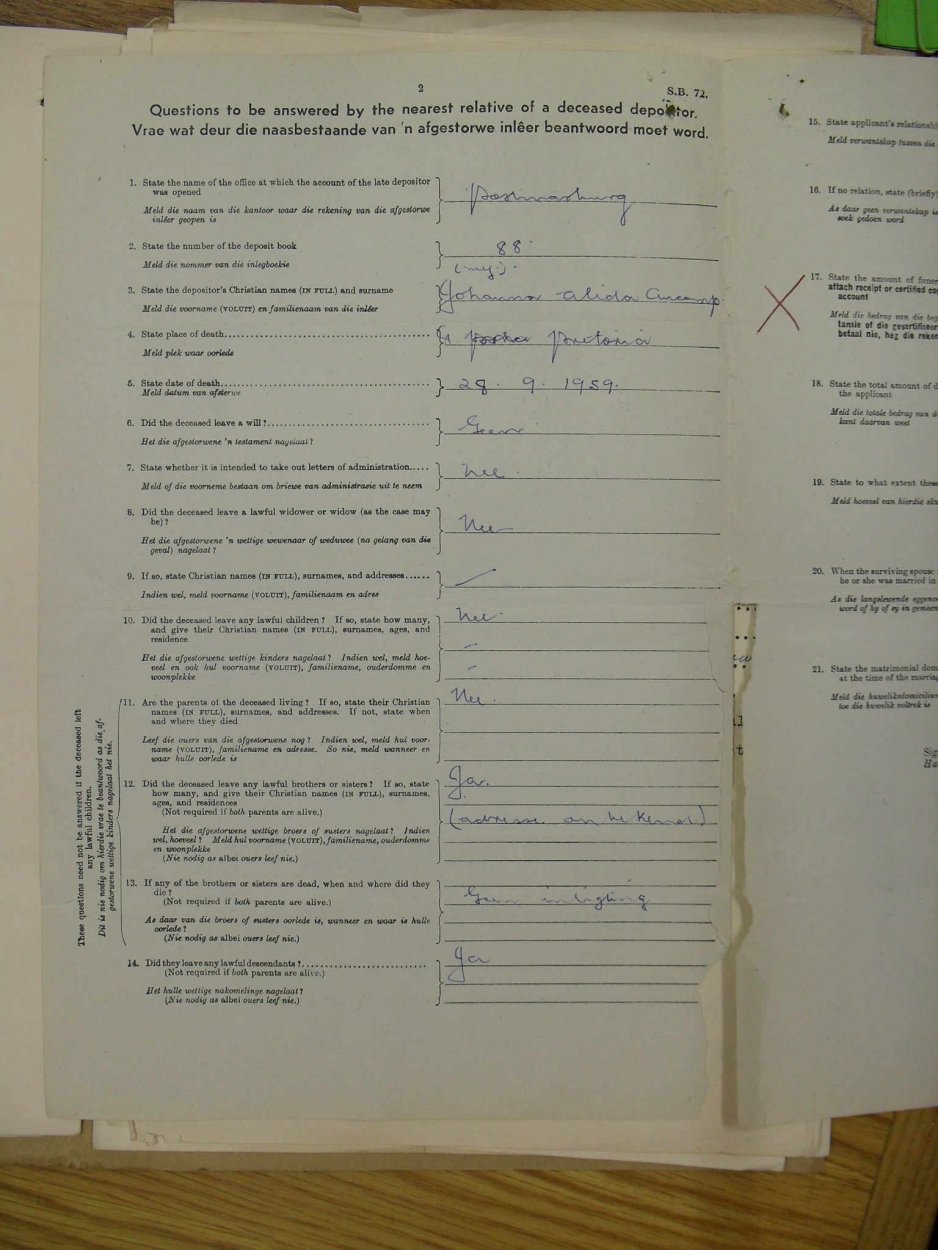 2
S.B. 72.
Questions to be answered by the nearest relative of a deceased depositor.
Vrae wat deur die naasbestaande van 'n afgestorwe inlêer beantwoord moet word.
1. State the name of the office at which the account of the late depositor
was opened
Meld die naam van die kantoor waar die rekening van die afgestorwe
inlêer geopen is
Postmasburg
2. State the number of the deposit book
88
Meld die nommer van die inlegboekie
(mej).
3. State the depositor's Christian names (IN FULL) and surname
Johanna Alida Aucamp.
Meld die voorname (VOLUIT) en familienaam van die inlêer
4. State place of death
Pretoria
Meld plek waar oorlede
5. State date of death
28. 9. 1959.
Meld datum van afsterwe
6. Did the deceased leave a will?
Geen
Het die afgestorwene 'n testament nagelaat?
7. State whether it is intended to take out letters of administration
Nee
Meld of die voorneme bestaan om briewe van administrasie uit te neem
8. Did the deceased leave a lawful widower or widow (as the case may
be)?
Nee
Het die afgestorwene 'n wettige wewenaar of weduwee (na gelang van die
geval) nagelaat?
9. If so, state Christian names (IN FULL), surnames, and addresses
Indien wel, meld voorname (VOLUIT), familienaam en adres
10. Did the deceased leave any lawful children? If so, state how many,
and give their Christian names (IN FULL), surnames, ages, and
residence
Nee
Het die afgestorwene wettige kinders nagelaat? Indien wel, meld hoe-
veel en ook hul voorname (VOLUIT), familiename, ouderdomme en
woonplekke
These questions need not be answered if the deceased left
any lawful children.
Dit is nie nodig om hierdie vrae te beantwoord as die af-
gestorwene wettige kinders nagelaat het nie.
11. Are the parents of the deceased living? If so, state their Christian
names (IN FULL), surnames, and addresses. If not, state when
and where they died
Nee.
Leef die ouers van die afgestorwene nog? Indien wel, meld hul voor-
name (VOLUIT), familiename en adresse. So nie, meld wanneer en
waar hulle oorlede is
12. Did the deceased leave any lawful brothers or sisters? If so, state
how many, and give their Christian names (IN FULL), surnames,
ages, and residences
(Not required if both parents are alive.)
Ja.
(adresse onbekend)
Het die afgestorwene wettige broers of susters nagelaat? Indien
wel, hoeveel? Meld hul voorname (VOLUIT), familiename, ouderdomme
en woonplekke
(Nie nodig as albei ouers leef nie.)
13. If any of the brothers or sisters are dead, when and where did they
die?
(Not required if both parents are alive.)
Geen inligting
As daar van die broers of susters oorlede is, wanneer en waar is hulle
oorlede?
(Nie nodig as albei ouers leef nie.)
14. Did they leave any lawful descendants?
(Not required if both parents are alive.)
Ja
Het hulle wettige nakomelinge nagelaat?
(Nie nodig as albei ouers leef nie.)
15. State applicant's
Meld verwantskap tussen die
16. If no relation, state (briefly)
As daar geen verwantskap is
soek gedoen word
17. State the amount of
attach receipt or certified
account
Meld die bedrag van die
tansie of die
betaal nie, heg die
18. State the total amount of
the applicant
Meld die totale bedrag van
kant daarvan weet
19. State to what extent these
Meld hoeveel van hierdie
20. When the surviving spouse
he or she was married in
As die langslewende
word of hy of sy in
21. State the matrimonial
at the time of the
Meld die
toe die huwelik voltrek is